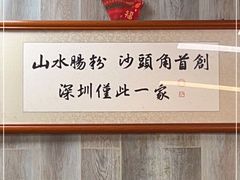 山水腸粉 沙頭角首創
深圳僅此一家